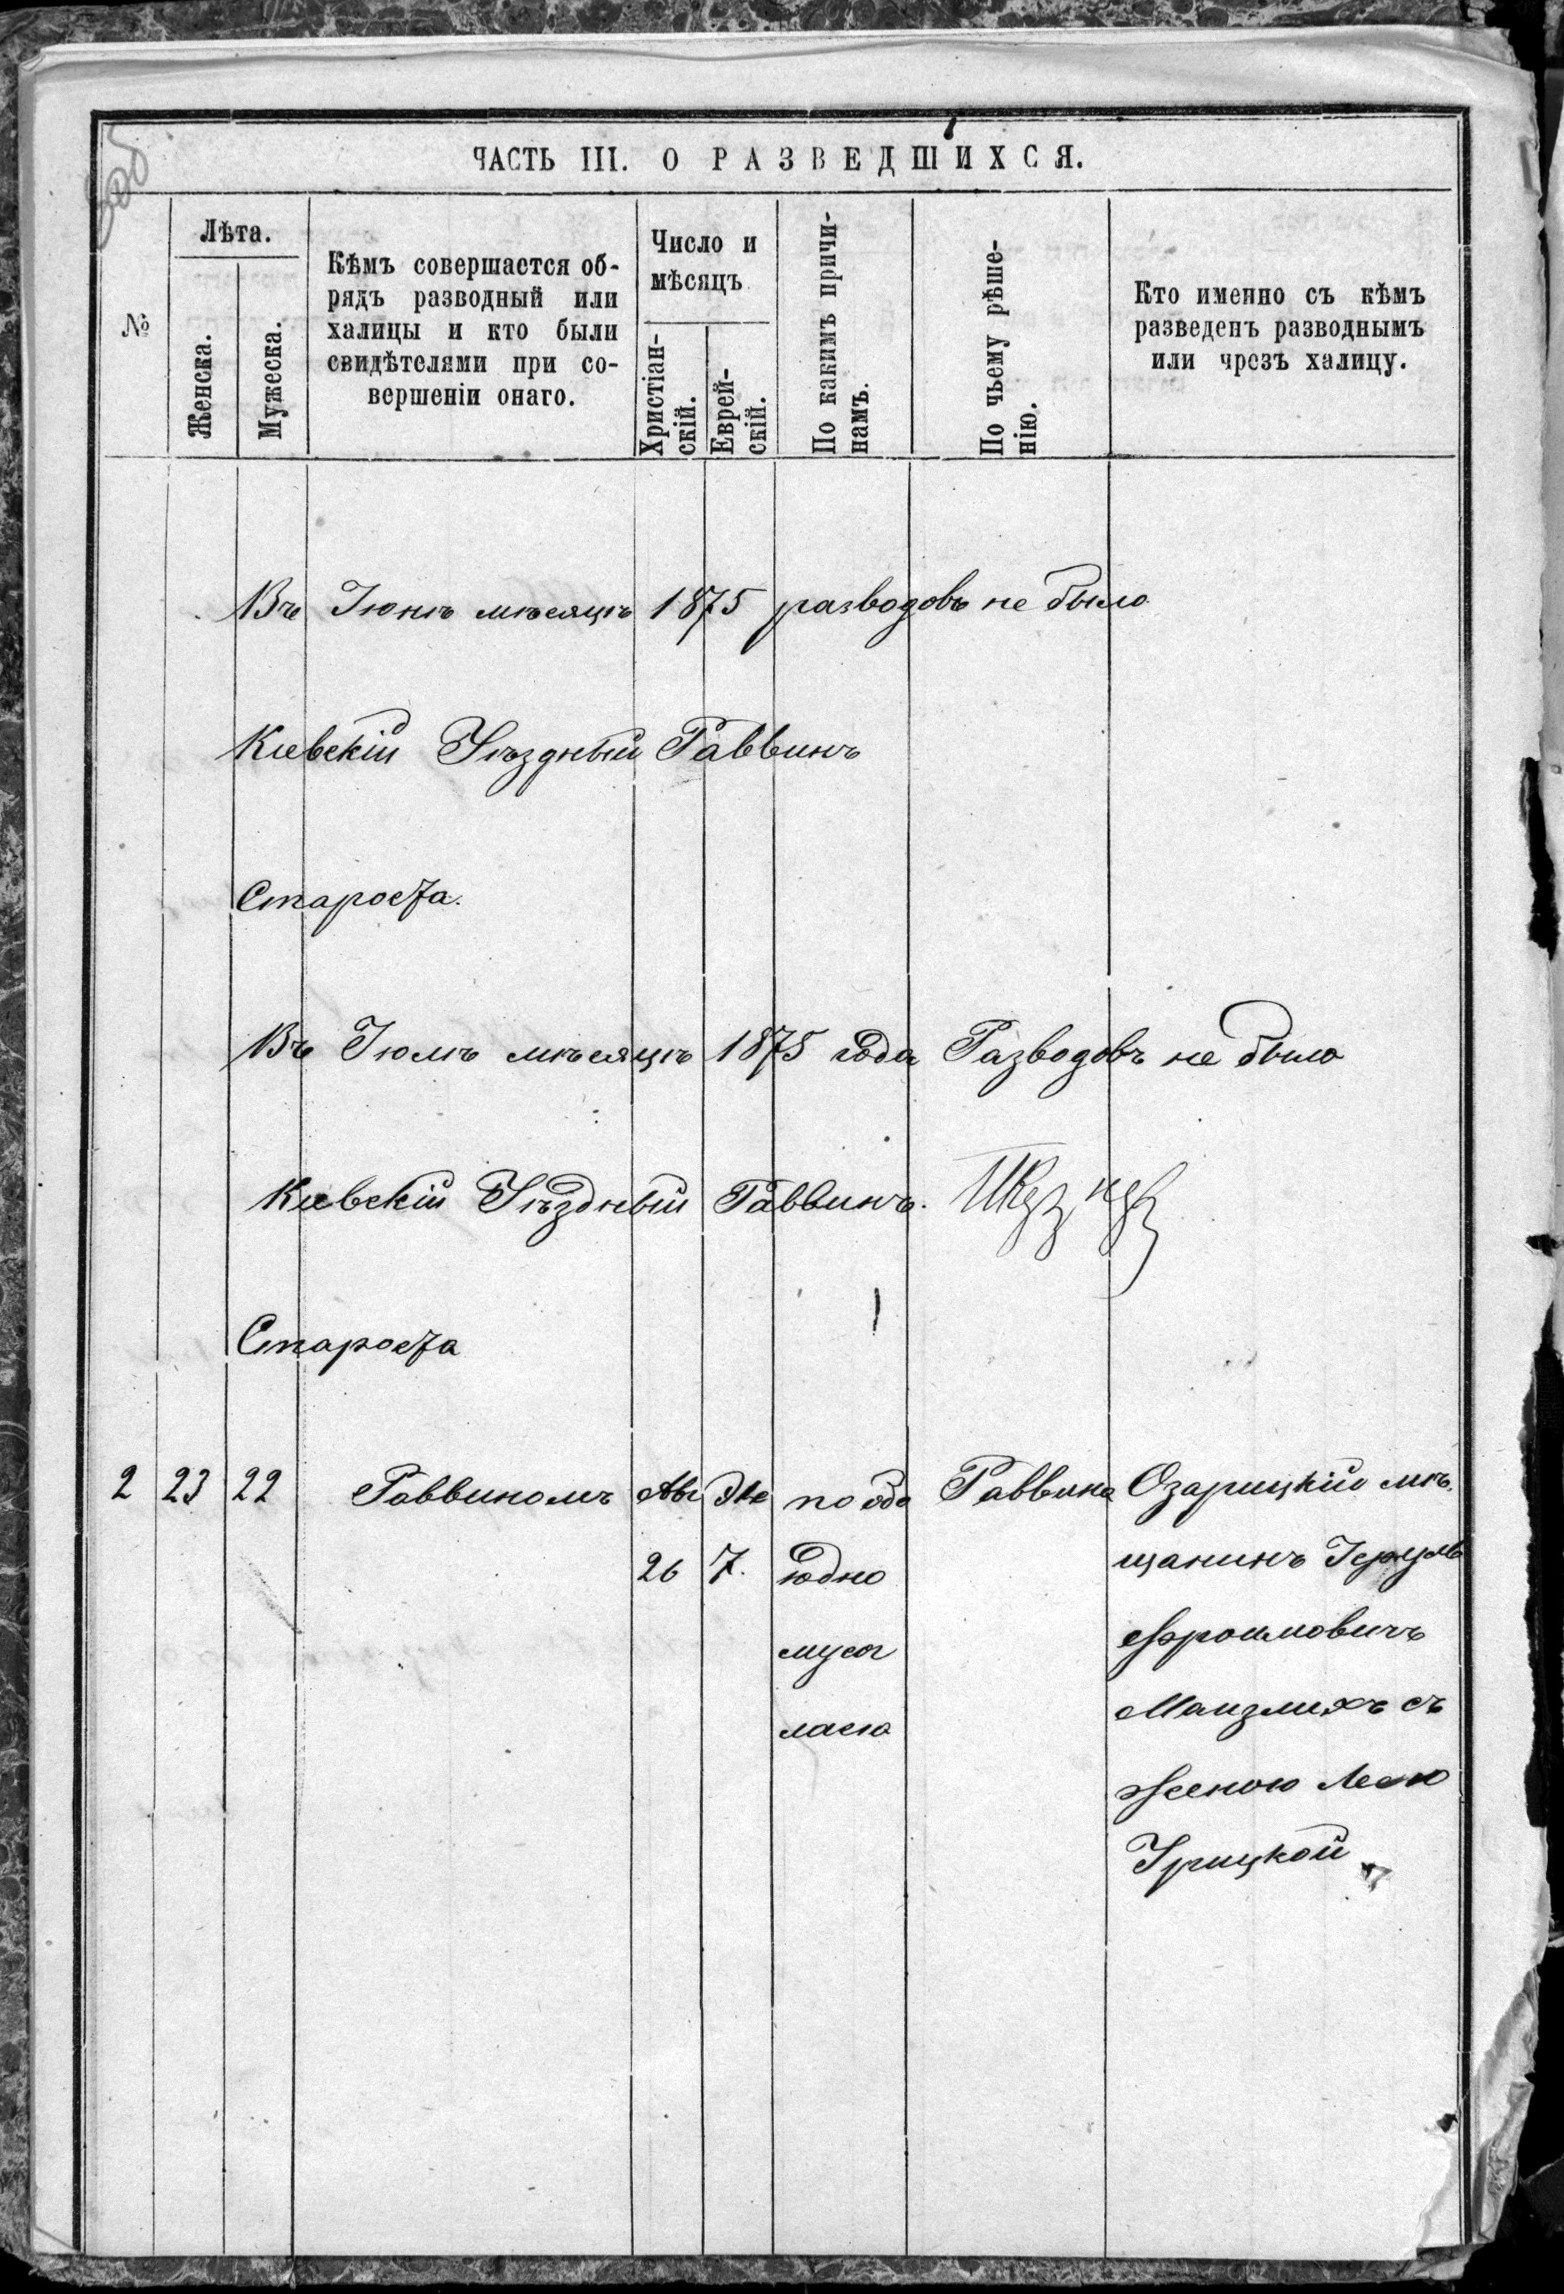 ЧАСТЬ III. О РАЗВЕДШИХСЯ.
№
Лѣта.
Женска.
Мужеска.
Кѣмъ совершается об-
рядъ разводный или
халицы и кто были
свидѣтелями при со-
вершеніи онаго.
Число и
мѣсяцъ
Христіан-
скій.
Еврей-
скій.
По какимъ причи-
намъ.
По чьему рѣше-
нію.
Кто именно съ кѣмъ
разведенъ разводнымъ
или чрезъ халицу.
Въ Іюнѣ мѣсяцѣ 1875 разводовъ не было
Кіевскій Уѣздный Раввинъ
Староста.
Въ Іюлѣ мѣсяцѣ 1875 года Разводовъ не было
Кіевскій Уѣздный Раввинъ.
Староста
2 23 22 Раввиномъ Авг Эле по обо Раввина Озарицкій мѣ
26 7. юдно щанинъ
му сог Эфроимовичъ
ласію съ
женою Леею
Урицкой